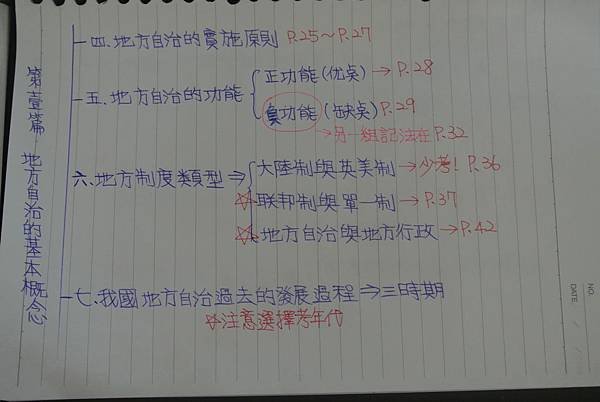 第壹篇 地方自治的基本概念
四.地方自治的實施原則 P.25~P.27
五.地方自治的功能
正功能(优點)→P.28
負功能(缺點)P.29
→另一組記法在P.32
六.地方制度類型⇒
大陸制與英美制→少考! P.36
☆联邦制與單一制→P.37
☆地方自治與地方行政→P.42
七.我國地方自治過去的發展過程⇒三時期
☆注意選擇考年代
NO.
DATE / /